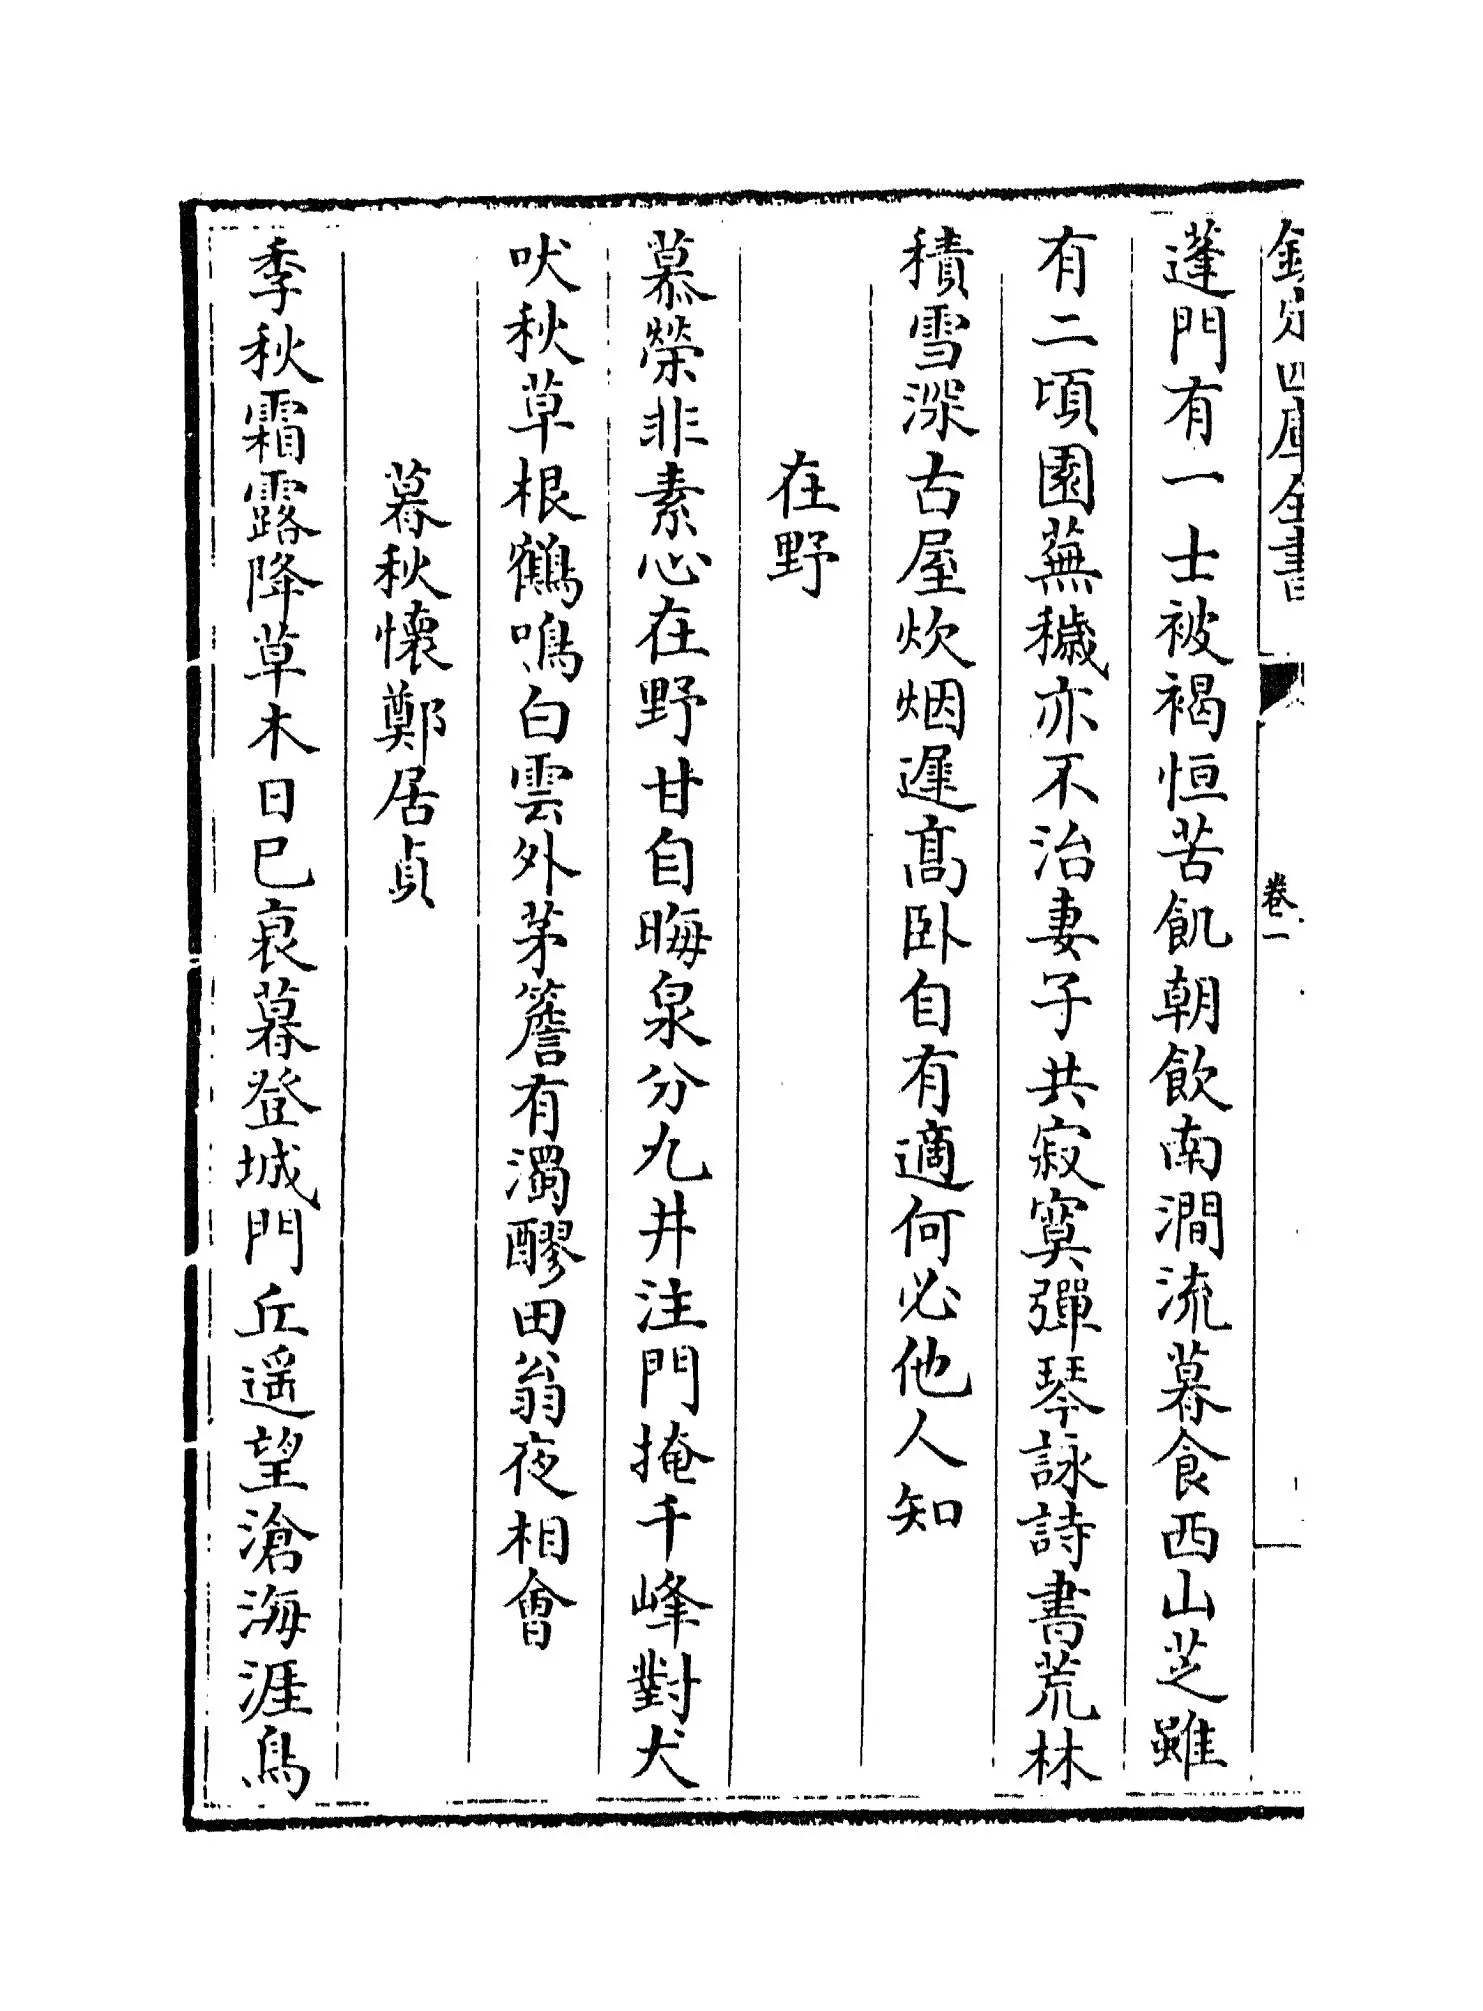 欽定四庫全書
卷一
蓬門有一士被褐恒苦飢朝飲南澗流暮食西山芝雖
有二頃園蕪穢亦不治妻子共寂寞彈琴詠詩書荒林
積雪深古屋炊烟遲髙卧自有適何必他人知
在野
慕榮非素心在野甘自晦泉分九井注門掩千峰對犬
吠秋草根鶴鳴白雲外茅簷有濁醪田翁夜相會
暮秋懷鄭居貞
季秋霜露降草木日已哀暮登城門丘遥望滄海涯鳥